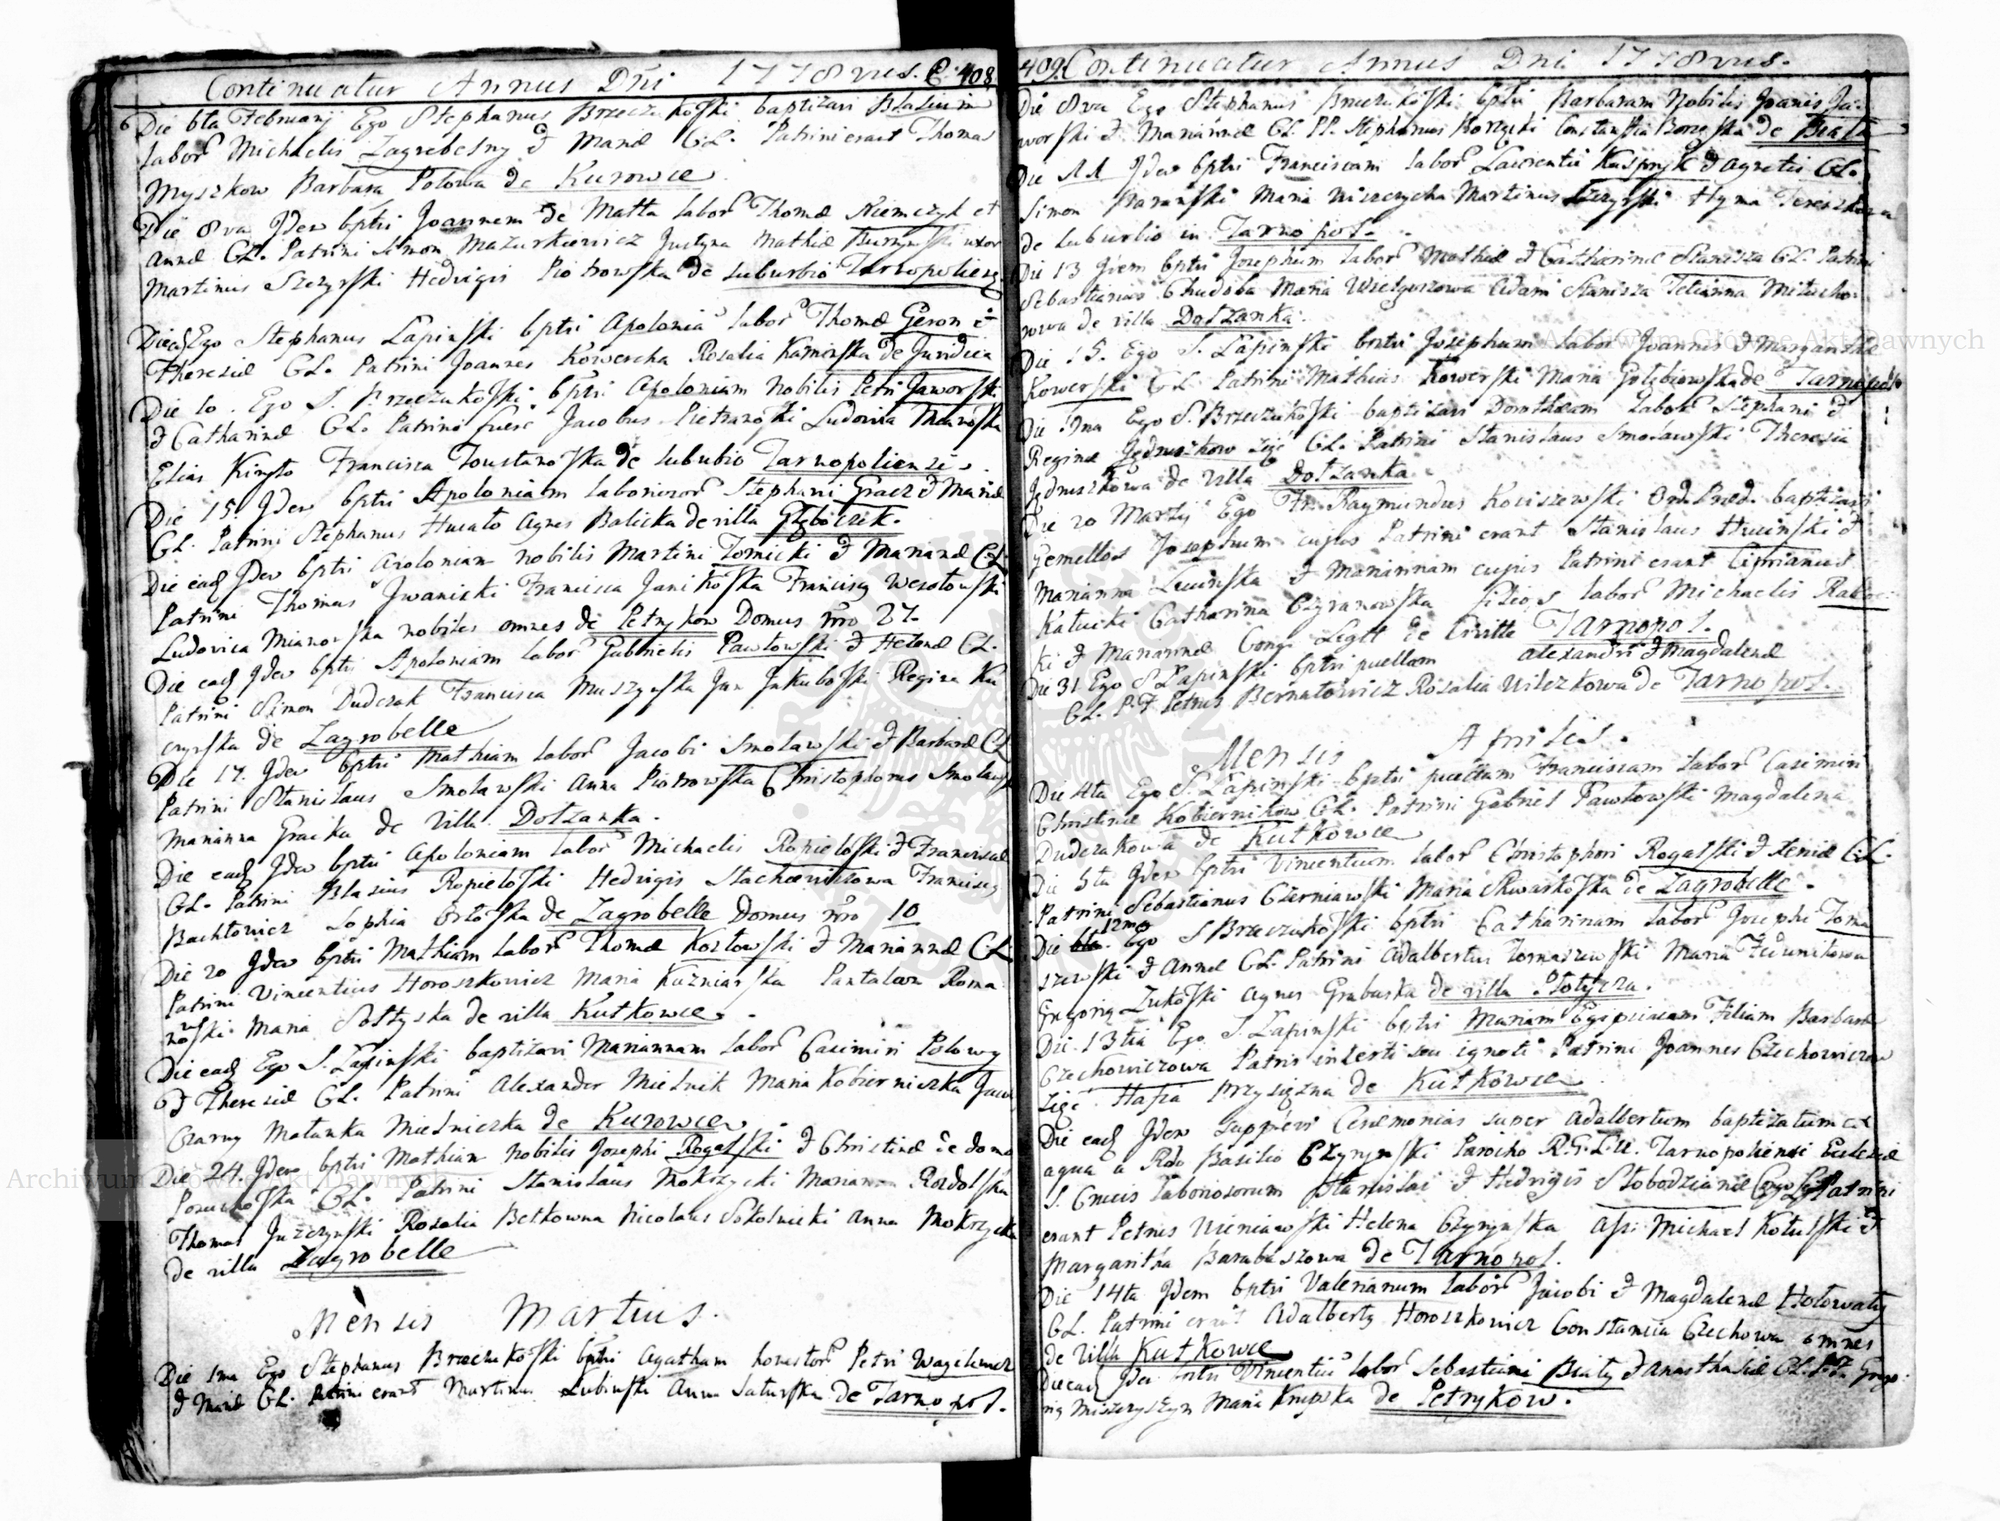 Continuatur Annus Dni 1778vus. 408
Die 6ta Februarij Ego Stephanus Brzeczukoſki baptizavi Blasium
labor Michaelis Zagrebelny & Mariæ CL. Patrini erant Thomas
Myszkow Barbara Polowa de Kurowce
Die 8va Jdem bptvi Joannem de Matta labor Thomæ Niemczyk et
Annæ CL. Patrini Simon Mazurkiewicz Justyna Mathiæ Burzynſki uxor
Martinus Szczyrſki Hedvigis Piotrowſka de suburbio Tarnopoliens
Die ead Ego Stephanus Lapinſki bptvi Apolonia labor Thomæ Geron &
Theresiæ CL. Patrini Joannes Kowercha Rosalia Kaminſka de Juridica
Die 10. Ego S. Brzeczukoſki bptvi Apoloniam Nobilis Petri Jaworſki
& Catharinæ CL. Patrini fuere Jacobus Pietranoſki Ludovica
Elias Francisca Toustanoſka de suburbio Tarnopoliensi.
Die 15. Jdem bptvi Apoloniam laboriosor Stephani Gracz & Mariæ
CL. Patrini Stephanus Hucało Agnes Balicka de villa Głęboczek.
Die ead Jdem bptvi Apoloniam nobilis Martini Zomicki & Mariannæ CL
Patrini Thomas Jwanicki Francisca Janikoſka Francisc Wesołowſki
Ludovica Mianowſka nobiles omnes de Petrykow Domus nro 27.
Die ead Jdem bptvi Apoloniam labor Gabrielis Pawłowſki & Helenæ CL.
Patrini Simon Dudczak Francisca Muszynſka Jan Jakuboſki Regina Ku
czyrſka de Zagrobelle
Die 17. Jdem bptvi Mathiam labor Jacobi Smolawſki & Barbaræ CL
Patrini Stanislaus Smolawſki Anna Piotrowſka Christophorus Smolawſ
Marianna Gracka de villa Dołżanka.
Die ead Jdem bptvi Apoloniam labor Michaelis Ropieloſki & Franciscæ
CL. Patrini Blasius Ropieloſki Hedvigis Stachowiczowa Francisc
Bachłowicz Sophia Orłoſka de Zagrobelle Domus nro 10
Die 20 Jdem bptvi Mathiam labor Thomæ Kozłowſki & Mariannæ CL
Patrini Vincentius Horoszkowicz Maria Kuzniarſka Pantaleon Roma
nowſki Maria Sołtyska de villa Kutkowce.
Die ead Ego S. Lapinſki baptizavi Mariannam labor Casimiri Polowy
& Theresiæ CL. Patrini Alexander Mielnik Maria Kobierniczka
Czarny Małanka Mielniczka de Kurowce.
Die 24. Jdem bptvi Mathiam Nobilis Josephi Rogalſki & Christinæ de domo
CL. Patrini Stanislaus Mokrzycki Marianna Rozdolſka
Thomas Juzczynſki Rosalia Betkowna Nicolaus Sokolnicki Anna Mokrzycka
de villa Zagrobelle
Mensis Martius.
Die 1ma Ego Stephanus Brzeczukoſki bptvi Agatham honestor Petri
& Mariæ CL. Patrini erant Martinus Lubinſki Anna Saturſka de Tarnopol.
409 Continuatur Annus Dni 1778vus.
Die 8va Ego Stephanus Brzeczukoſki bptvi Barbaram Nobilis Joanis Ja-
worſki & Mariannæ CL. PP. Stephanus Korzycki Constantia de Biała
Die 11 Jdem bptvi Franciscam labor Laurentii Kuspryk & Agnetis CL.
Simon Baranſki Maria Martinus Szczyrſki Hyma Tereszkowa
de suburbio in Tarnopol.
Die 13 Jdem bptvi Josephum labor Mathiæ & Catharinæ Stanisza CL. Patrini
Sebastianus Chudoba Maria Wielgoszowa Adam Stanisza Tetianna Mitucho-
nowa de villa Dołżanka.
Die 15. Ego S. Lapinſki bptvi Josephum labor Joannis & Margarithæ
Kowerſki CL. Patrini Mathias Kowerſki Maria Gołębiowſka de Tarnopol
Die Ego S. Brzeczukoſki baptizavi Dorotheam labor Stephani &
Reginæ Jędruszkow CL. Patrini Stanislaus Smolawſki Theresia
Jędruszkowa de villa Dołżanka.
Die 20 Martij Ego Fr. Raymundus Kociszewſki Ord. Præd. baptizavi
Gemellos Josephum cujus Patrini erant Stanislaus &
Marianna & Mariannam cujus Patrini erant Ciprianus
Katucki Catharina Cegranowſka Filios labor Michaelis
ki & Mariannæ Conj. Legtt de Civitte Tarnopol.
Die 31 Ego S Lapinſki bptvi puellam Alexandri & Magdalenæ
CL. P.P. Petrus Bernatowicz Rosalia Wilczkowa de Tarnopol.
Mensis Aprilis.
Die 4ta Ego S. Lapinſki bptvi puellam Franciscam labor Casimiri
Christinæ Kobiernikow CL. Patrini Gabriel Pawłowſki Magdalena
Dudczakowa de Kutkowce
Die 5ta Jdem bptvi Vincentium labor Christophori Rogalſki & Xeniæ CL.
Patrini Sebastianus Czerniawſki Maria Skwarkoſka de Zagrobelle.
Die 12ma Ego S Brzeczukoſki bptvi Catharinam labor Josephi Toma
szewſki & Annæ CL. Patrini Adalbertus Tomaszewſki Maria
Gregorig Zukoſki Agnes Grabuska de villa Płotycza.
Die 13tia Ego S. Lapinſki bptvi Mariam Egiptiacam Filiam Barbaræ
Czechowiczowa Patris incerti seu ignoti Patrini Joannes Czechowiczow
zięć Hafia Przysiężna de Kutkowce
Die ead Jdem supplevi Ceremonias super Adalbertum baptizatum ex
aqua a Rdo Basilio Parocho R.G.L.U. Tarnopoliensi Ecclesiæ
S. Crucis laboriosorum Stanislai & Hedvigis Słobodzianæ Patrini
erant Petrus Wieniawſki Helena Czyrynſka Aſs: Michael Kotulſki &
Margaritha Barabaszowa de Tarnopol.
Die 14ta Jdem bptvi Valerianum labor Jacobi & Magdalenæ Hołowaty
CL. Patrini erat Adalbert Horoszkowicz Constancia Czechowa omnes
de Villa Kutkowce
Die ead Jdem bptvi Vincentiu labor Sebastiani Biały & Anasthasiæ CL. P.P. Grego-
rig Miszczyszyn Maria Krupska de Petrykow.
Archiwum Główne Akt Dawnych
Archiwum Główne Akt Dawnych